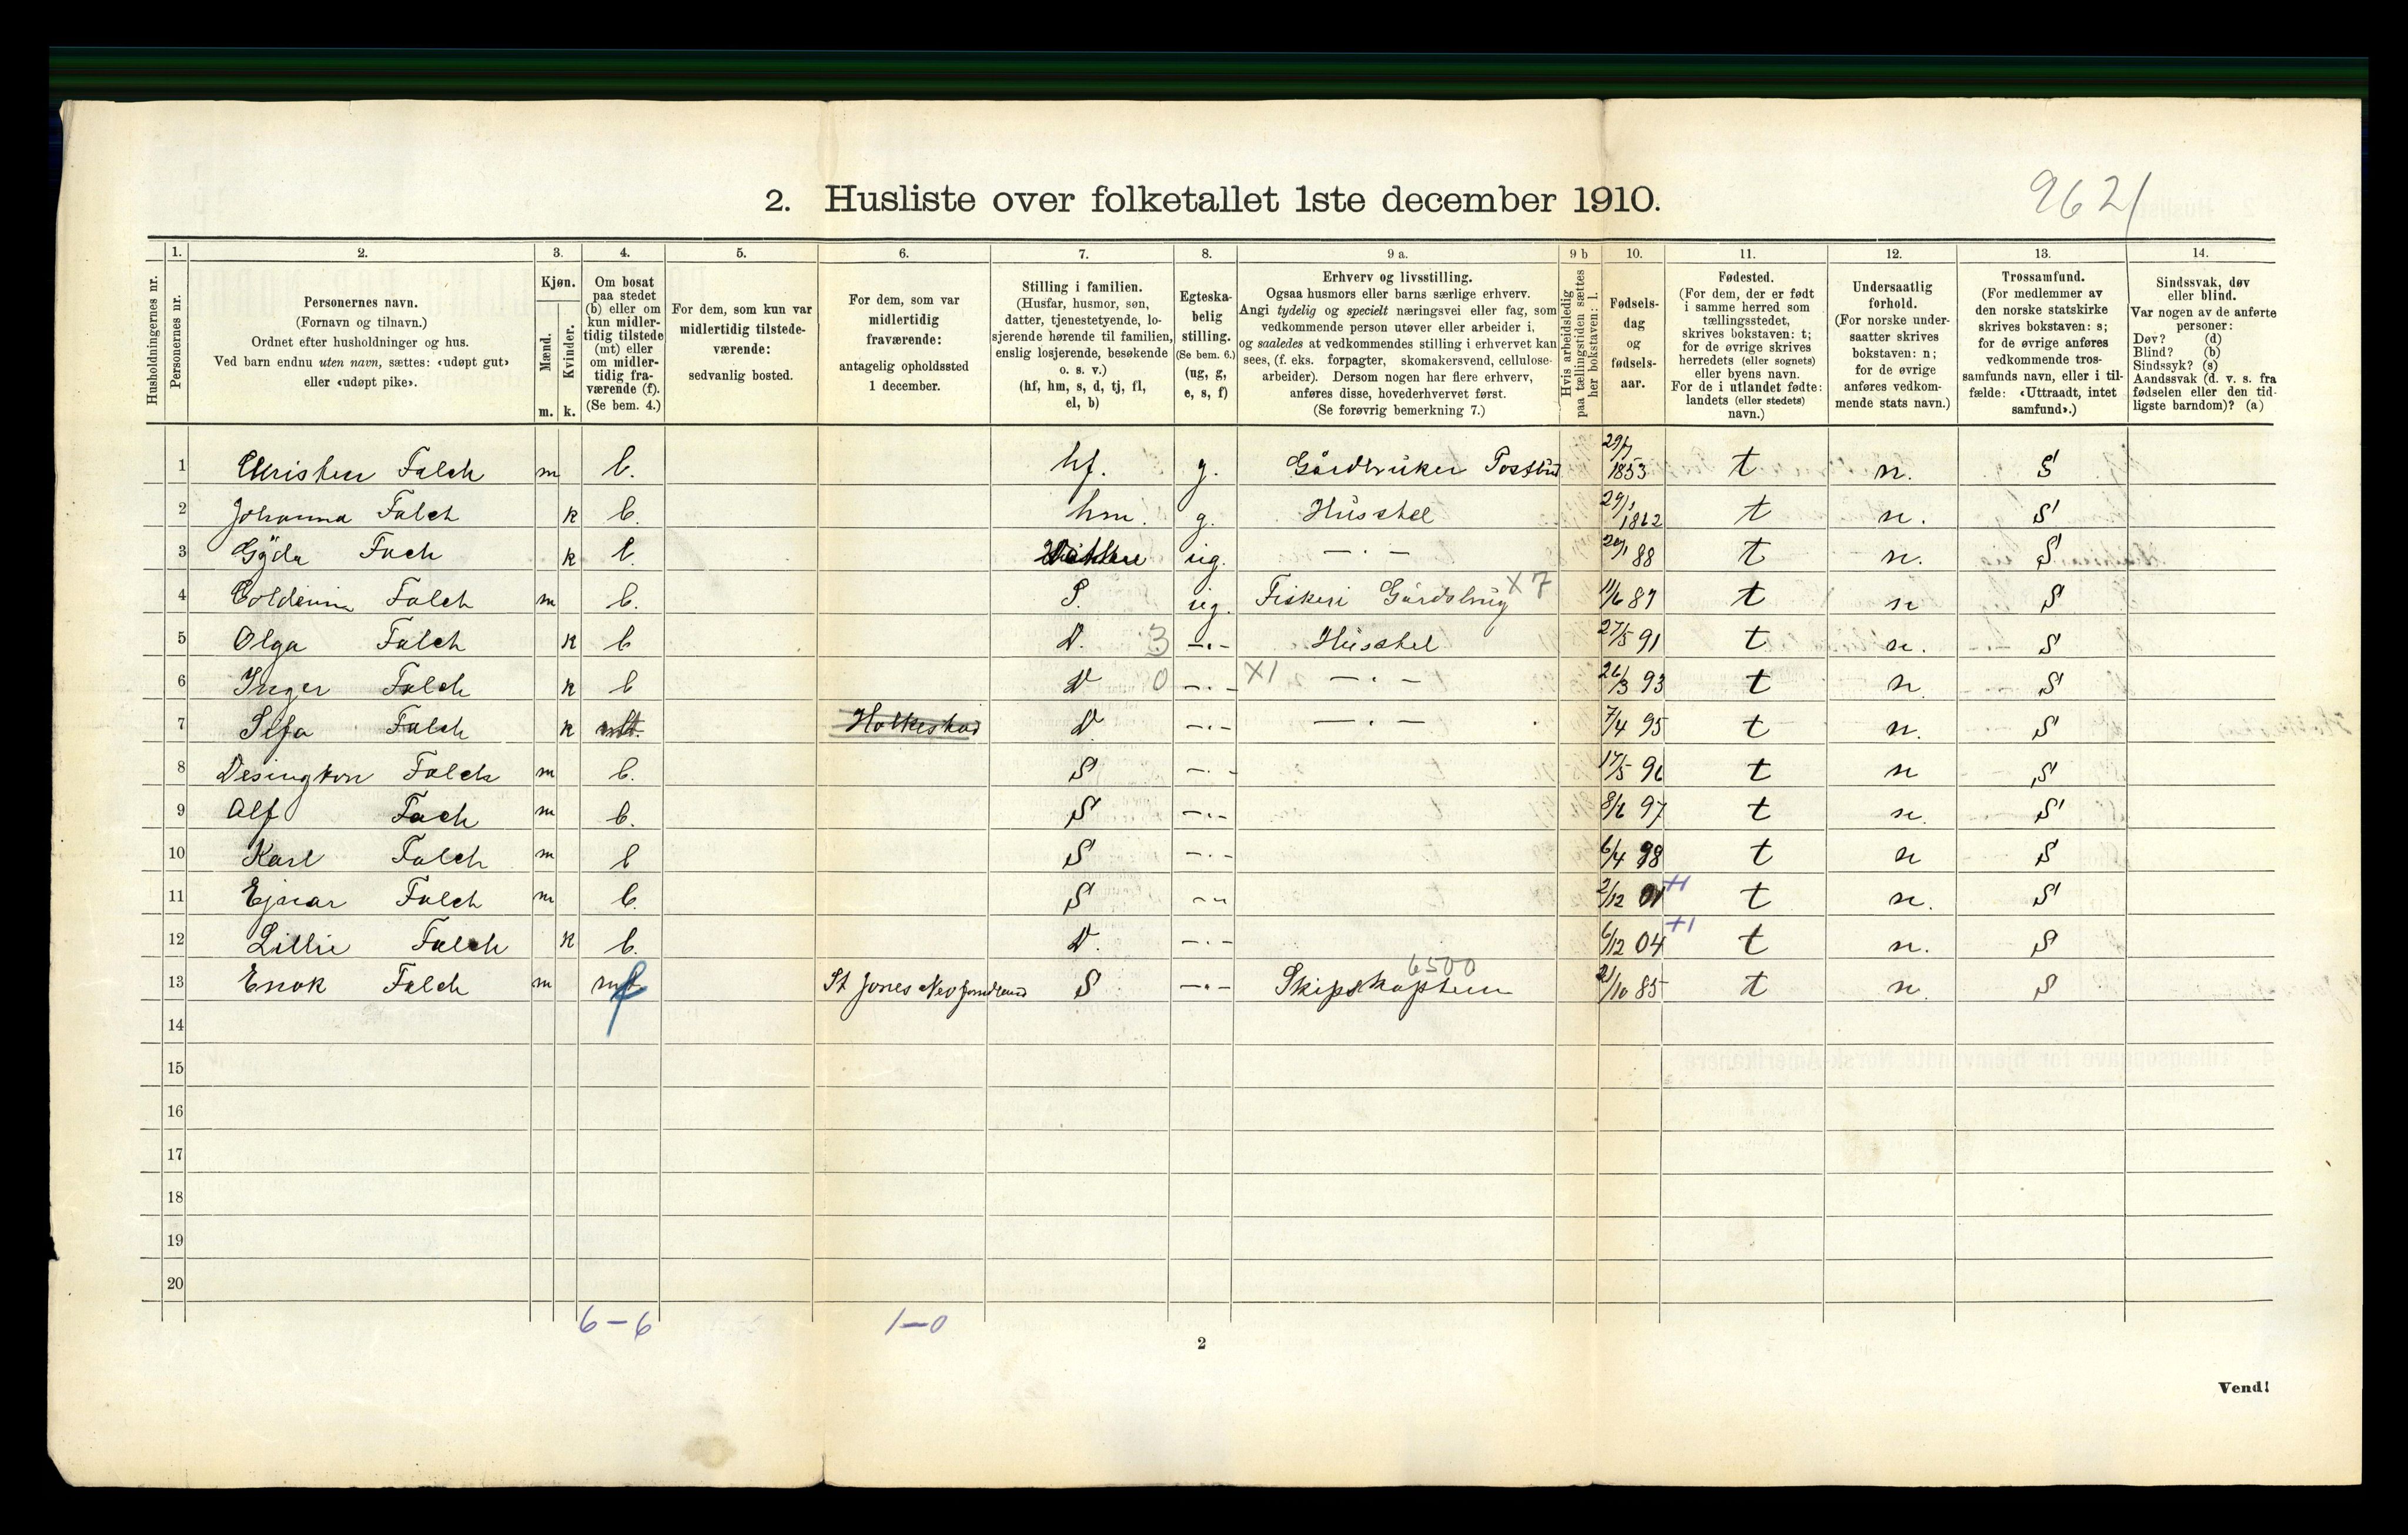 2. Husliste over folketallet 1ste december 1910.
9621
Husholdningernes nr.
1. Personernes nr.
2. Personernes navn.
(Fornavn og tilnavn.)
Ordnet efter husholdninger og hus.
Ved barn endnu uten navn, sættes: «udøpt gut»
eller «udøpt pike».
3. Kjøn.
Mænd. m.
Kvinder. k.
4. Om bosat
paa stedet
(b) eller om
kun midler-
tidig tilstede
(mt) eller
om midler-
tidig fra-
værende (f).
(Se bem. 4.)
5. For dem, som kun var
midlertidig tilstede-
værende:
sedvanlig bosted.
6. For dem, som var
midlertidig
fraværende:
antagelig opholdssted
1 december.
7. Stilling i familien.
(Husfar, husmor, søn,
datter, tjenestetyende, lo-
sjerende hørende til familien,
enslig losjerende, besøkende
o. s. v.)
(hf, hm, s, d, tj, fl,
el, b)
8. Egteska-
belig
stilling.
(Se bem. 6.)
(ug, g,
e, s, f)
9 a. Erhverv og livsstilling.
Ogsaa husmors eller barns særlige erhverv.
Angi tydelig og specielt næringsvei eller fag, som
vedkommende person utøver eller arbeider i,
og saaledes at vedkommendes stilling i erhvervet kan
sees, (f. eks. forpagter, skomakersvend, cellulose-
arbeider). Dersom nogen har flere erhverv,
anføres disse, hovederhvervet først.
(Se forøvrig bemerkning 7.)
9 b Hvis arbeidsledig
paa tællingstiden sættes
her bokstaven: l.
10. Fødsels-
dag
og
fødsels-
aar.
11. Fødested.
(For dem, der er født
i samme herred som
tællingsstedet,
skrives bokstaven: t;
for de øvrige skrives
herredets (eller sognets)
eller byens navn.
For de i utlandet fødte:
landets (eller stedets)
navn.)
12. Undersaatlig
forhold.
(For norske under-
saatter skrives
bokstaven: n;
for de øvrige
anføres vedkom-
mende stats navn.)
13. Trossamfund.
(For medlemmer av
den norske statskirke
skrives bokstaven: s;
for de øvrige anføres
vedkommende tros-
samfunds navn, eller i til-
fælde: «Uttraadt, intet
samfund».)
14. Sindssvak, døv
eller blind.
Var nogen av de anførte
personer:
Døv? (d)
Blind? (b)
Sindssyk? (s)
Aandssvak (d. v. s. fra
fødselen eller den tid-
ligste barndom)? (a)
1 Christen Falch m b. hf. g. Gårdbruker Postbud 1853 t n. S
2 Johanna Falch k b. hm. g. Husstel 29/1 1862 t n. S
3 Gÿda Fach k b. ug. —·— 88 t n. S
4 Falch m b. S. ug. Fiskeri Gårdsbrug X7 11/6 87 t n S
5 Olga Falch k b D. 3 —·— Husstel 27/5 91 t n. S
6 Inger Falch k b D 0 —·— X1 —·— 26/3 93 t n. S
7 Falch k Holkestad D —·— —·— 7/4 95 t n. S
8 Falch m b. S —·— 17/5 96 t n S
9 Alf Fach m b. S —·— 97 t n. S
10 Karl Falch m b S —·— 6/4 98 t n S
11 Ejnar Falch m b. S —·— 2/12 01 +1 t n. S
12 Lillie Falch k b. D. —·— 6/12 04 +1 t n. S
13 Enok Falch m f St Jones Neo S —·— Skipskaptein 6500 21/10 85 t n. S
14
15
16
17
18
19
20
6 – 6
1 – 0
2
Vend!